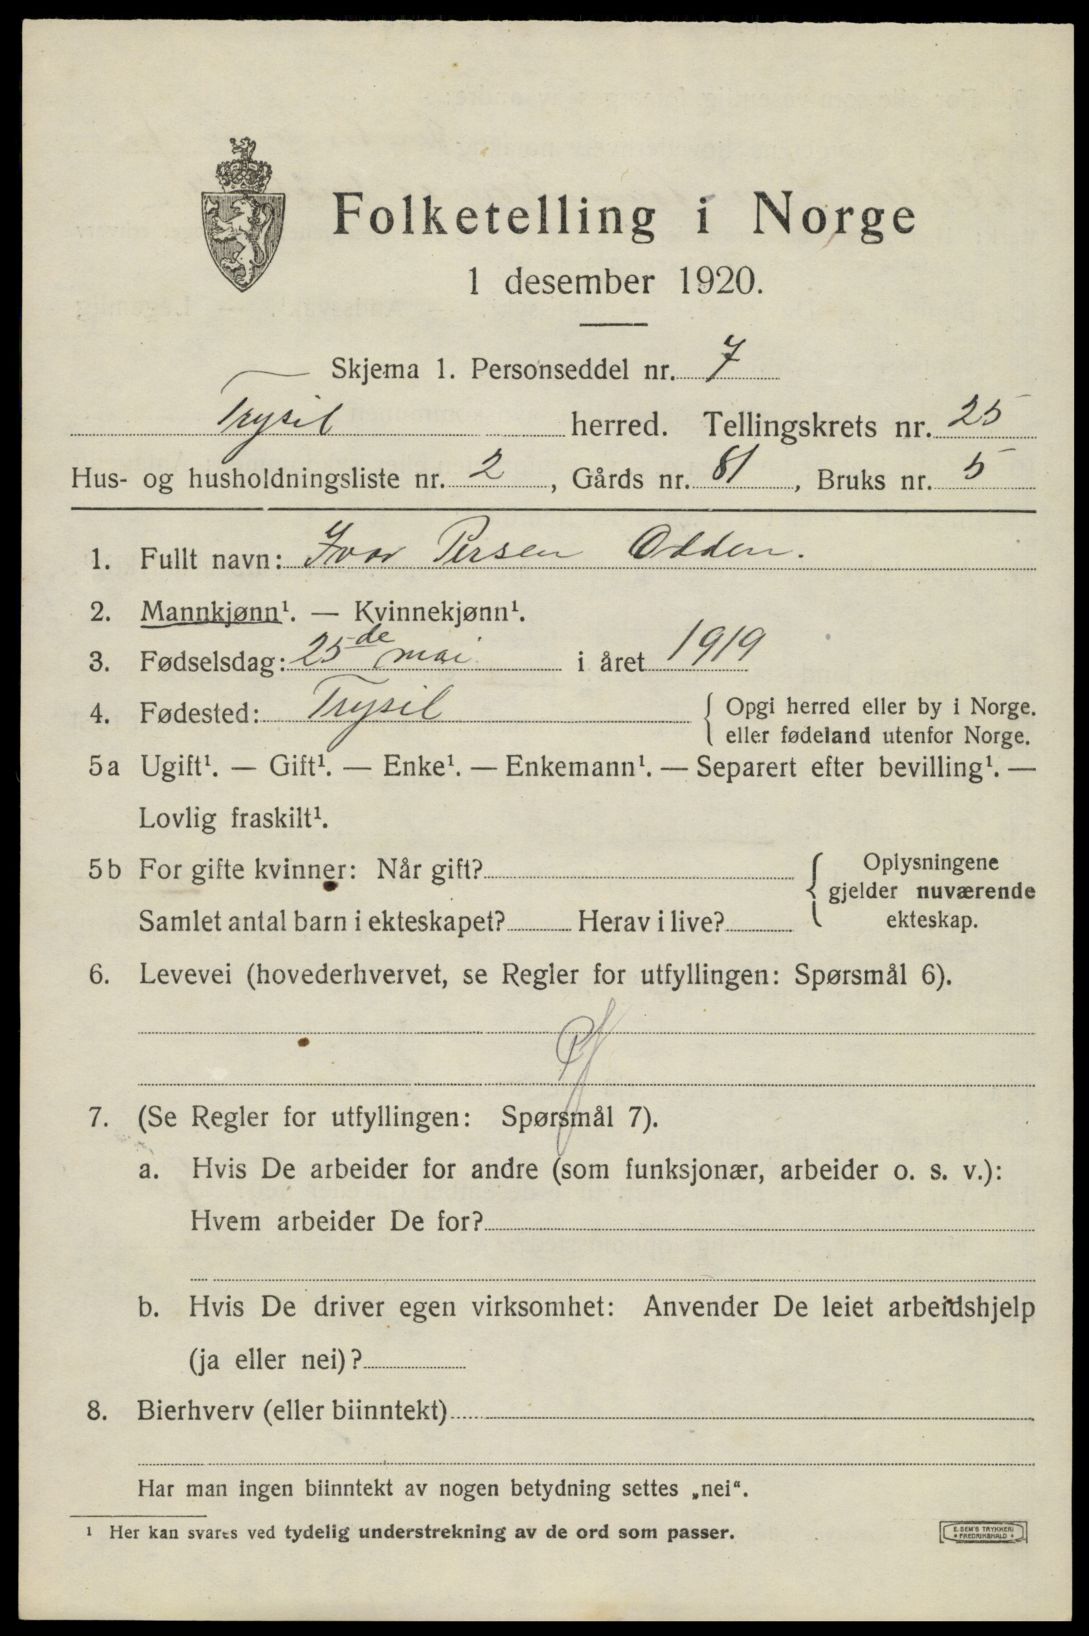 Folketelling i Norge
1 desember 1920.
Skjema 1. Personseddel nr. 7
Trysil herred. Tellingskrets nr. 25
Hus- og husholdningsliste nr. 2, Gårds nr. 81, Bruks nr. 5
1. Fullt navn: Ivar Persen Odden.
2. Mannkjønn¹. — Kvinnekjønn¹.
3. Fødselsdag: 25de mai i året 1919
4. Fødested: Trysil { Opgi herred eller by i Norge.
eller fødeland utenfor Norge.
5a Ugift¹. — Gift¹. — Enke¹. — Enkemann¹. — Separert efter bevilling¹. —
Lovlig fraskilt¹.
5b For gifte kvinner: Når gift? { Oplysningene
gjelder nuværende
Samlet antal barn i ekteskapet? Herav i live? ekteskap.
6. Levevei (hovederhvervet, se Regler for utfyllingen: Spørsmål 6).
7. (Se Regler for utfyllingen: Spørsmål 7).
a. Hvis De arbeider for andre (som funksjonær, arbeider o. s. v.):
Hvem arbeider De for?
b. Hvis De driver egen virksomhet: Anvender De leiet arbeidshjelp
(ja eller nei)?
8. Bierhverv (eller biinntekt)
Har man ingen biinntekt av nogen betydning settes „nei“.
¹ Her kan svares ved tydelig understrekning av de ord som passer.
E. SEM'S TRYKKERI
• FREDRIKSHALD •